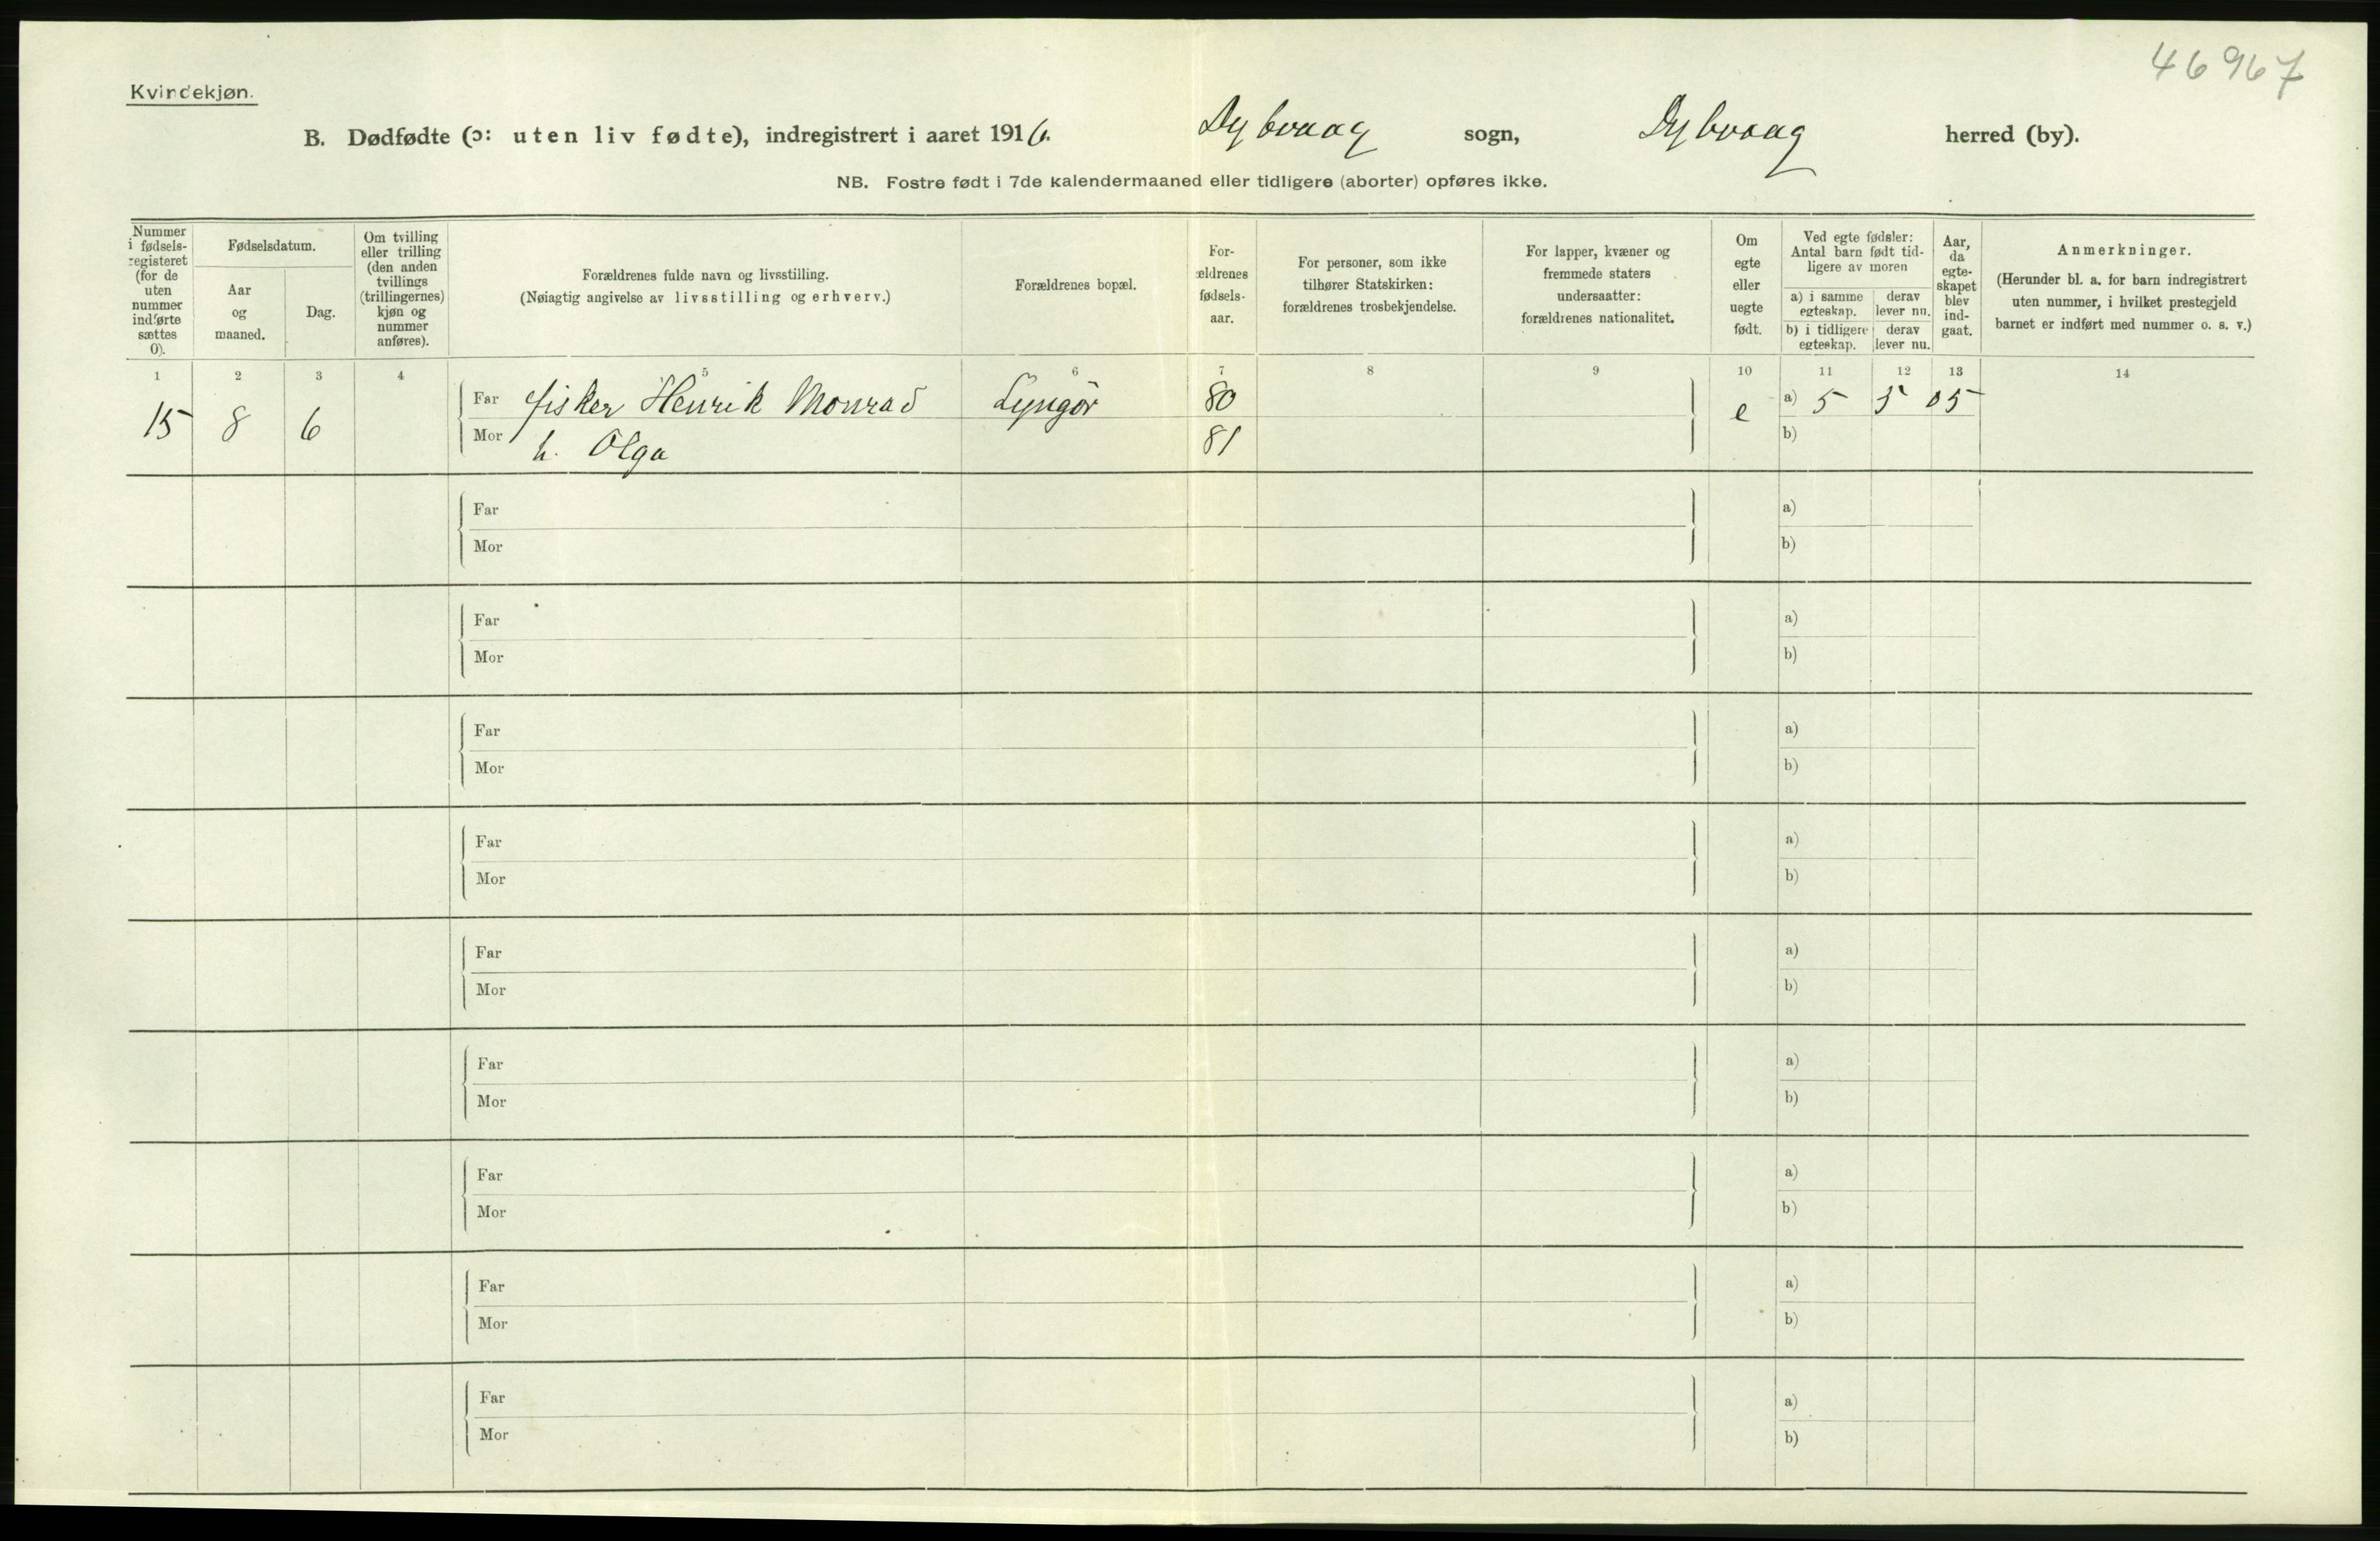 46967
Kvindekjøn.
B. Dødfødte (ɔ: uten liv fødte), indregistrert i aaret 1916. Dybvaag sogn, Dybvaag herred (by).
NB. Fostre født i 7de kalendermaaned eller tidligere (aborter) opføres ikke.
Nummer
i fødsels-
registeret
(for de
uten
nummer
indførte
sættes
0).
Fødselsdatum.
Aar
og
maaned.
Dag.
Om tvilling
eller trilling
(den anden
tvillings
(trillingernes)
kjøn og
nummer
anføres).
Forældrenes fulde navn og livsstilling.
(Nøiagtig angivelse av livsstilling og erhverv.)
Forældrenes bopæl.
For-
ældrenes
fødsels-
aar.
For personer, som ikke
tilhører Statskirken:
forældrenes trosbekjendelse.
For lapper, kvæner og
fremmede staters
undersaatter:
forældrenes nationalitet.
Om
egte
eller
uegte
født.
Ved egte fødsler:
Antal barn født tid-
ligere av moren
a) i samme
egteskap.
derav
lever nu.
b) i tidligere
egteskap.
derav
lever nu.
Aar,
da
egte-
skapet
blev
ind-
gaat.
Anmerkninger.
(Herunder bl. a. for barn indregistrert
uten nummer, i hvilket prestegjeld
barnet er indført med nummer o. s. v.)
1 2 3 4 5 6 7 8 9 10 11 12 13 14
Far fisker Henrik Monrad Lyngør 80 a) 5 5 05
15 8 6 e
Mor h. Olga 81 b)
Far a)
Mor b)
Far a)
Mor b)
Far a)
Mor b)
Far a)
Mor b)
Far a)
Mor b)
Far a)
Mor b)
Far a)
Mor b)
Far a)
Mor b)
Far a)
Mor b)